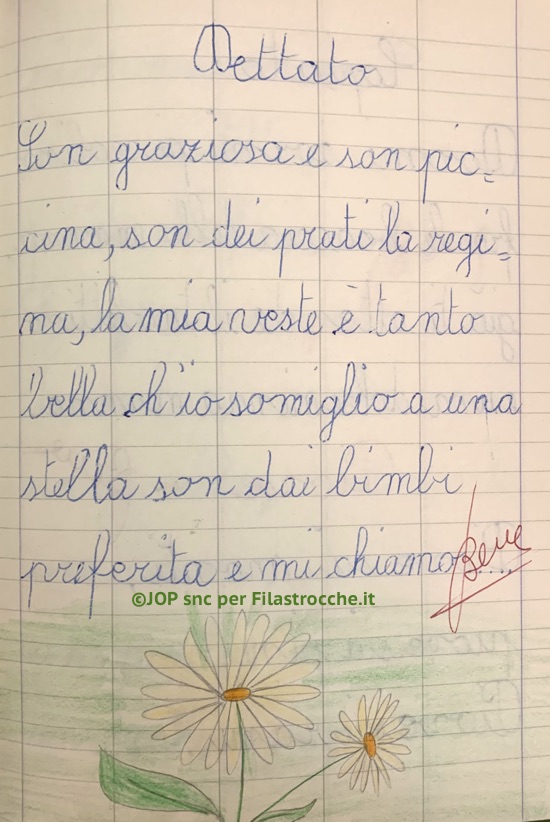 Dettato
Son graziosa e son pic=
cina, son dei prati la regi=
na, la mia veste è tanto
bella ch'io somiglio a una
stella son dai bimbi
preferita e mi chiamo....
Bene
©JOP snc per Filastrocche.it